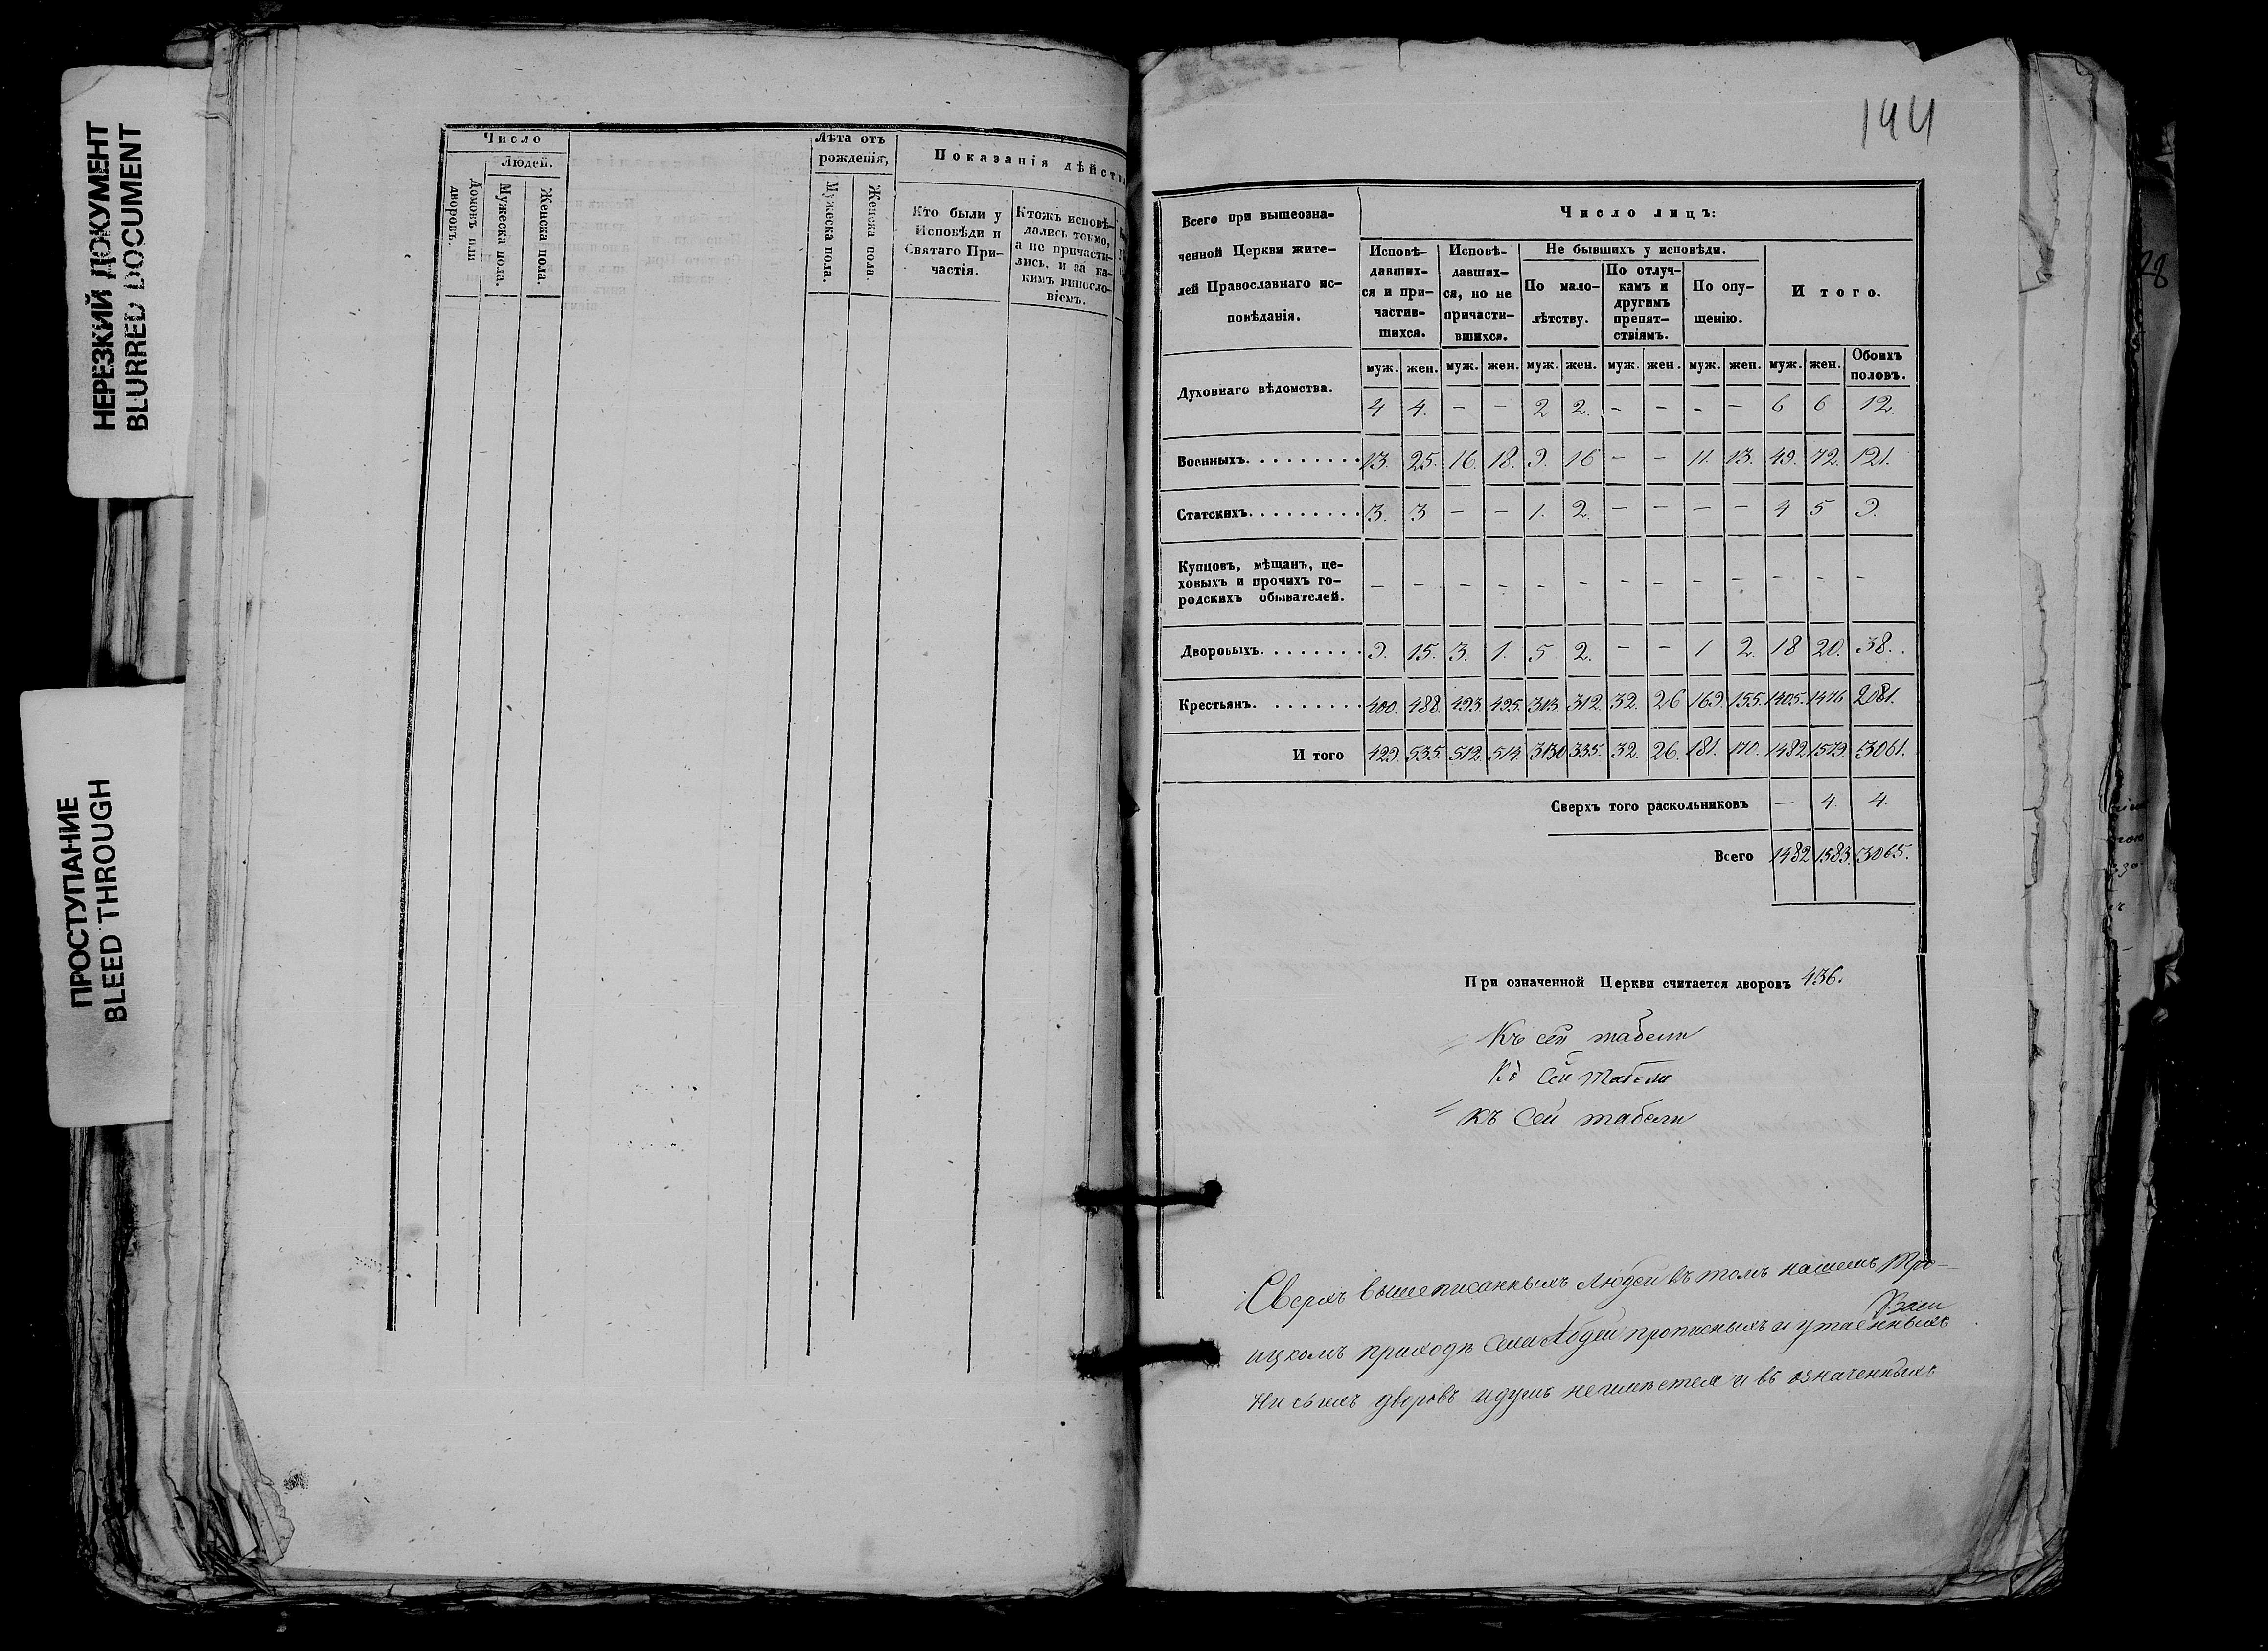 НЕРЕЗКИЙ ДОКУМЕНТ
BLURRED DOCUMENT
ПРОСТУПАНИЕ
BLEED THROUGH
Число
Людей.
Домовъ или дворовъ.
Мужеска пола.
Женска пола.
Лѣта отъ
рожденія,
Мужеска пола.
Женска пола.
Показанія дѣйств
Кто были у
Исповѣди и
Святаго При-
частія.
Ктожъ исповѣ-
дались токмо,
а не причасти-
лись, и за ка-
кимъ винословіемъ.
144
28
Всего при вышеозна-
ченной Церкви жите-
лей Православнаго ис-
повѣданія.
Число лицъ:
Исповѣ-
давших-
ся и при-
частив-
шихся.
Исповѣ-
давших-
ся, но не
причасти-
вшихся.
Не бывшихъ у исповѣди.
По мало-
лѣтству.
По отлуч-
камъ и
другимъ
препят-
ствіямъ.
По опу-
щенію.
Итого.
муж. жен. муж. жен. муж. жен. муж. жен. муж. жен. муж. жен. Обоихъ половъ.
Духовнаго вѣдомства. 4 4. – – 2 2. – – – – 6 6 12.
Военныхъ. 13. 25. 16. 18. 9. 16 – – 11. 13. 49. 72. 121.
Статскихъ. 3. 3 – – 1. 2. – – – – 4 5 9.
Купцовъ, мѣщанъ, це-
ховыхъ и прочихъ го-
родскихъ обывателей. – – – – – – – – – – – – –
Дворовыхъ. 9. 15. 3. 1. 5 2. – – 1 2. 18 20. 38.
Крестьянъ. 400. 488. 493. 495. 313. 312. 32. 26 169. 155. 1405. 1476 2081.
И того 429. 535. 512. 514. 330 335. 32. 26. 181. 170. 1482 1579. 3061.
Сверхъ того раскольниковъ – 4. 4.
Всего 1482 1583. 3065.
При означенной Церкви считается дворовъ 436.
Къ сей табели
Къ Сей табели
къ Сей табели
Сверхъ вышеписанныхъ людей въ томъ нашемъ Тро-
ицкомъ приходѣ прописныхъ и утаенныхъ
ни сынъ дворовъ и душъ неимѣется и въ означенныхъ